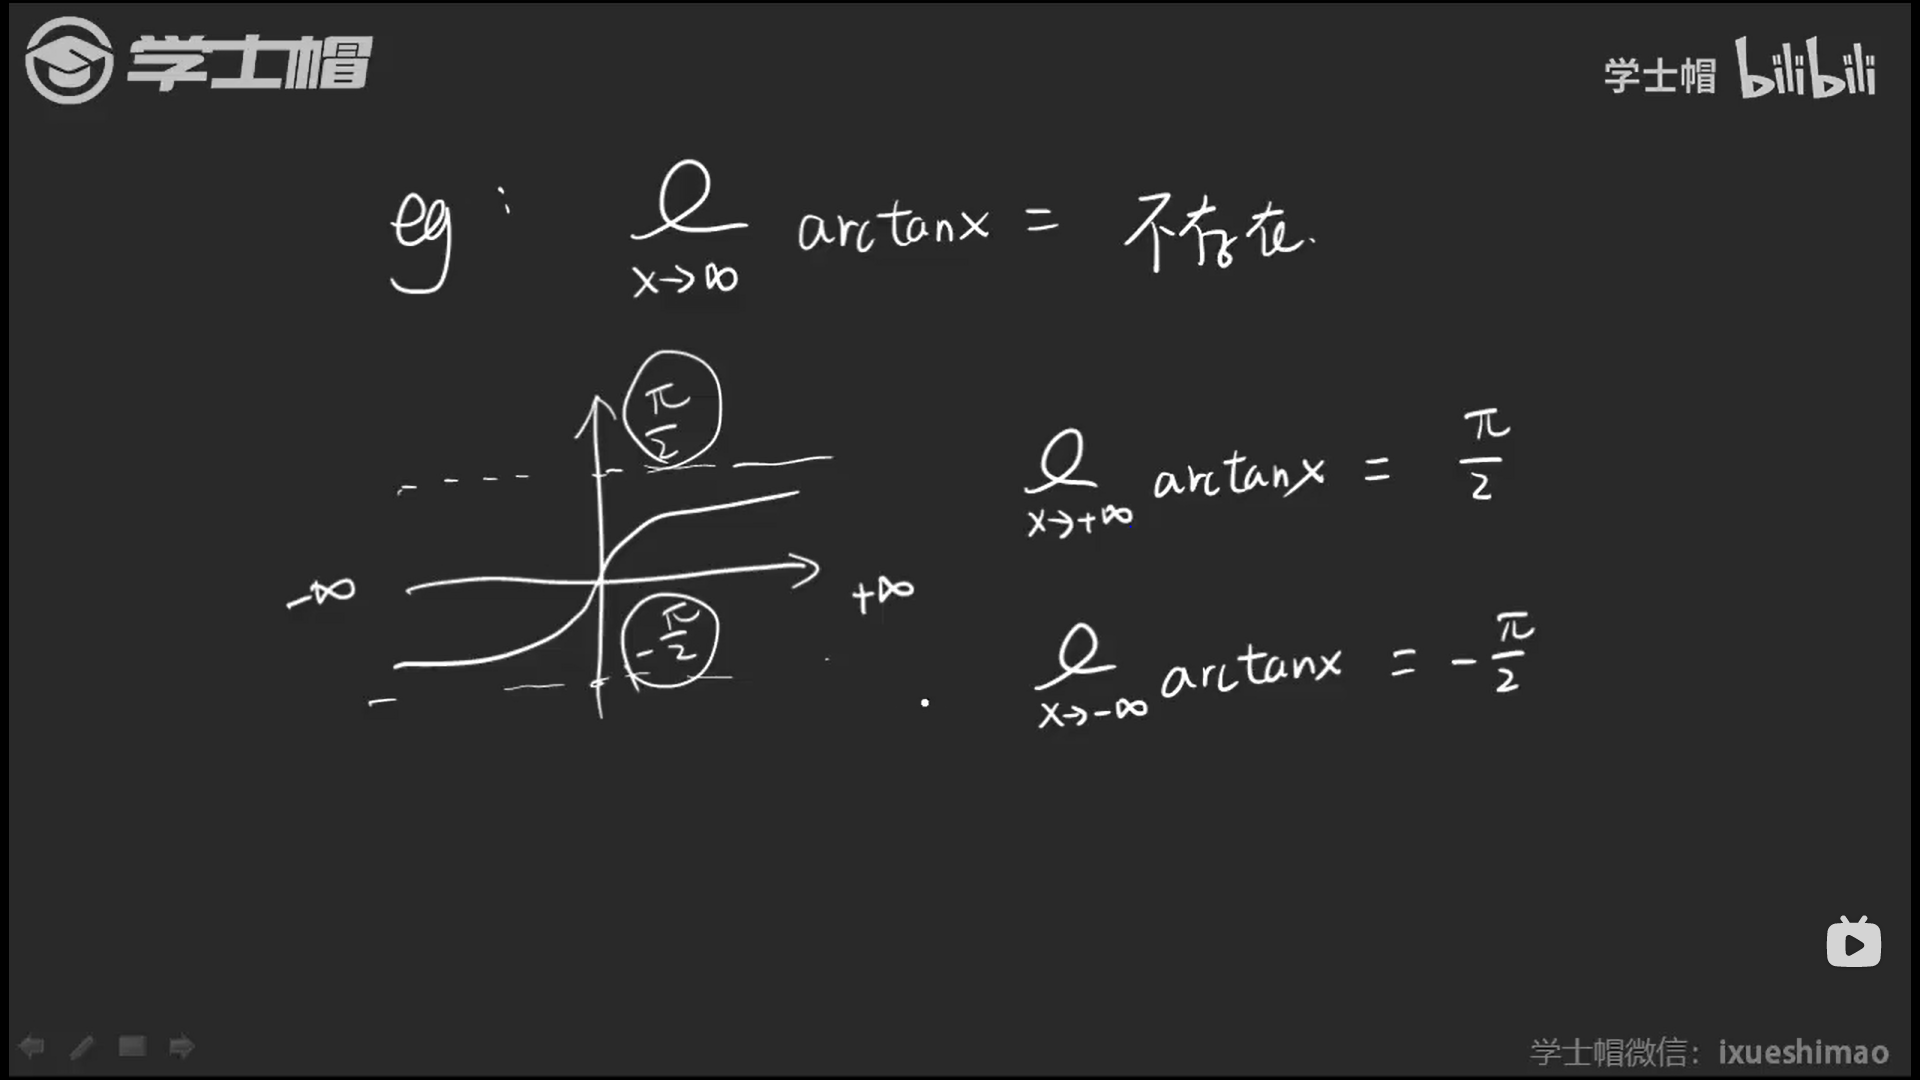 学士帽
学士帽 bilibili
eg: lim x→∞ arctanx = 不存在.
π/2
lim x→+∞ arctanx = π/2
-∞
+∞
-π/2
lim x→-∞ arctanx = -π/2
学士帽微信：ixueshimao